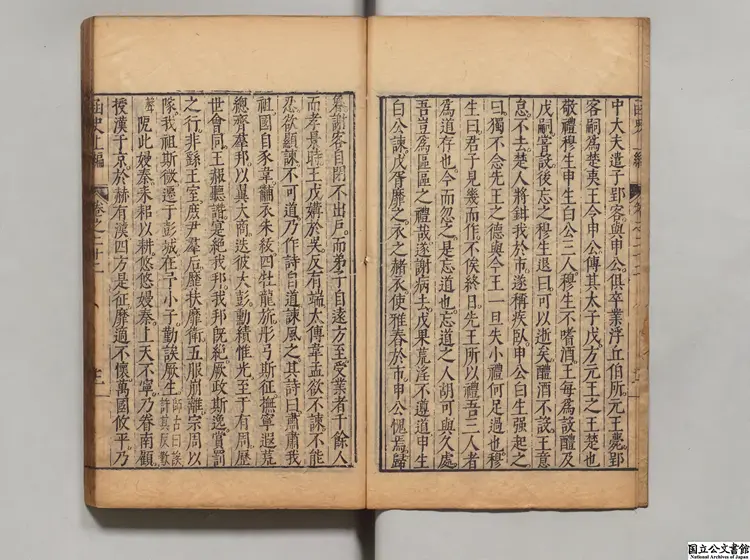 中大夫遣子郢客與申公俱卒業浮丘伯所元王薨郢
客嗣爲楚夷王令申公傅其太子戊方元王之王楚也
敬禮穆生申生白公三人穆生不嗜酒王每爲設醴及
戊嗣嘗設後忘之穆生退曰可以逝矣醴酒不設王意
怠不去楚人將鉗我於市遂稱疾臥申公白生强起之
曰獨不念先王之德與今王一旦失小禮何足過也穆
生曰君子見幾而作不俟終日先王所以禮吾三人者
爲道存也今而忽之是忘道也忘道之人胡可與久處
吾豈爲區區之禮哉遂謝病去戊果荒淫不遵道申生
白公諫戊胥靡之衣之赭衣使雅舂於市申公愧焉歸
魯謝客自閉不出戶而弟子自遠方至受業者千餘人
而孝景時王戊媾於吳反有端太傅韋孟欲不諫不能
忍欲顯諫不可道乃作詩曰道諫風之其詩曰肅肅我
祖國自豕韋黼衣朱紱四牡龍旂彤弓斯征撫寧遐荒
總齊羣邦以翼大商迭彼大彭勳績惟光至于有周歴
世會同王赧聽譖寔絶我邦我邦既絶厥政斯逸賞罰
之行非繇王室庶尹羣后靡扶靡衛五服崩離宗周以
隊我祖斯微遷于彭城在予小子勤誒厥生師古曰誒許其反歎
聲阸此嫚秦耒耜以耕悠悠嫚秦上天不寧乃眷南顧
授漢于京於赫有漢四方是征靡適不懷萬國攸平乃
函史上編 卷之二十二
国立公文書館
National Archives of Japan